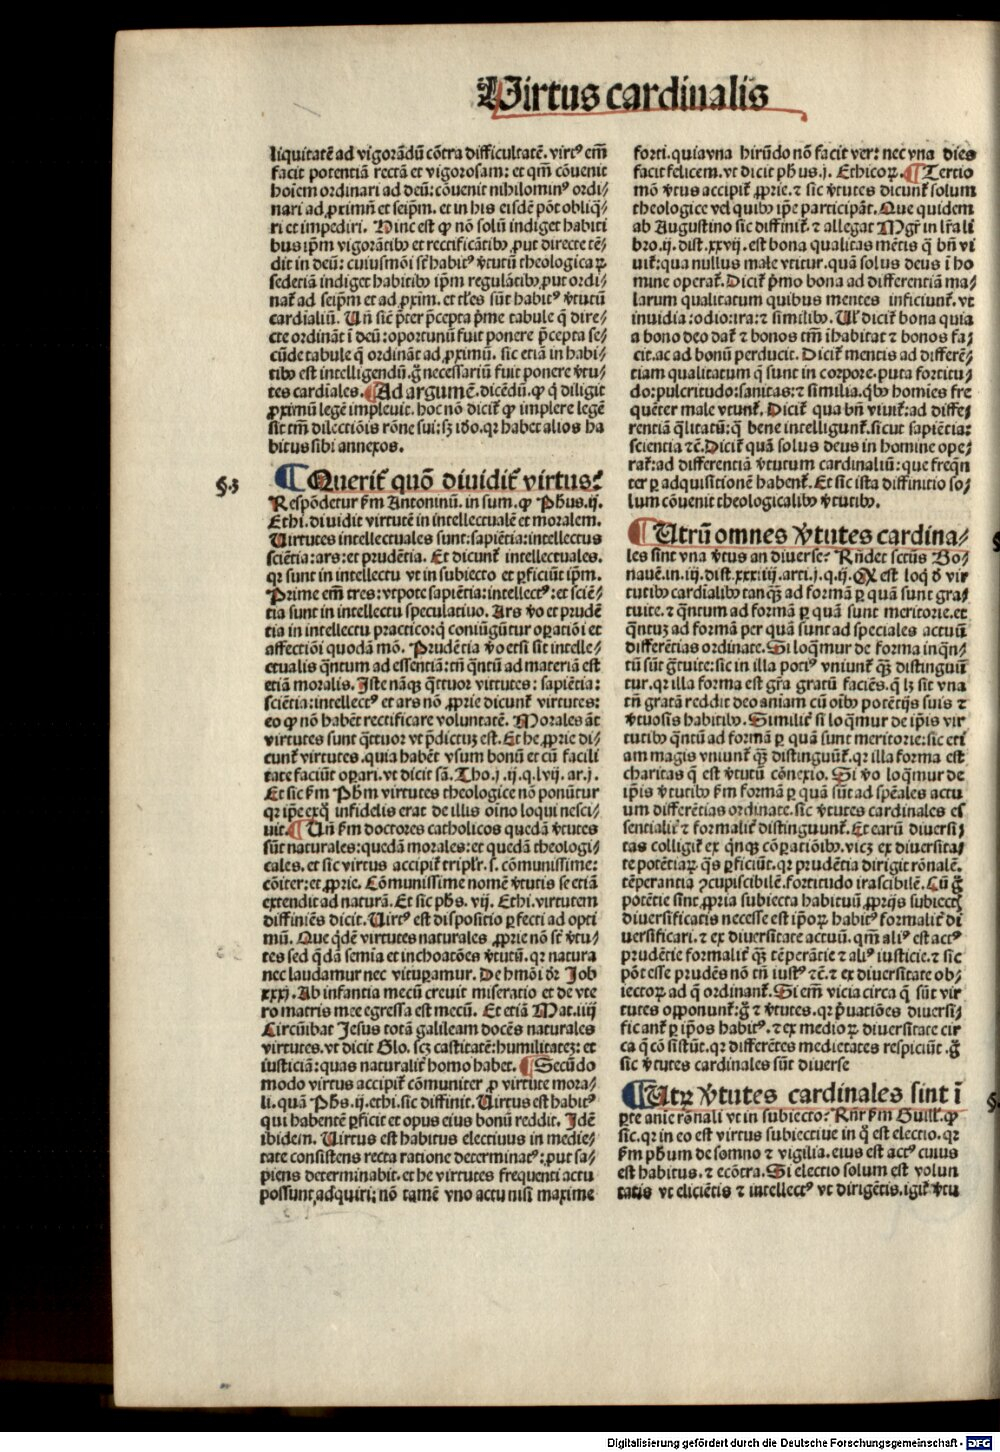 Virtus cardinalis
liquitatē ad vigorādū cōtra difficultatē. virtꝰ em̄
facit potentiā rectā et vigorosam: et qm̄ cōuenit
hoīem ordinari ad deū: cōuenit nihilominꝰ ordi⸗
nari ad ꝓximū et seip̄m. et in his eisdē pōt obliq̄⸗
ri et impediri. Hinc est ꝙ nō solū indiget habiti
bus ip̄m vigorātibꝰ et rectificātibꝰ ꝓut directe tē⸗
dit in deū: cuiusmōi sūt habitꝰ v̓tutū theologicaꝝ
sed etiā indiget habitibꝰ ip̄m regulātibꝰ ꝓut ordi⸗
nat̄ ad seip̄m et ad ꝓxim. et tles sūt habitꝰ v̓tutū
cardialiū. Vn̄ sic̄ p̄ter p̄cepta p̄me tabule q̄ dire⸗
cte ordināt ī deū: oportunū fuit ponere p̄cepta se⸗
cūde tabule q̄ ordināt ad ꝓximū. sic etiā in habi⸗
tibꝰ est intelligendū. g̊ necessariū fuit ponere v̓tu⸗
tes cardiales. ¶ Ad argumē. dicēdū. ꝙ q̇ diligit
ꝓximū legē impleuit. hoc nō dicit̄ ꝙ implere legē
sit tm̄ dilectiōis rōne sui: sꝫ iđo. qꝛ habet alios ha
bitus sibi annexos.
§.3
¶ Querit̄ quō diuidit̄ virtus?
Respōdetur fm̄ Antoninū. in sum. ꝙ Phūs. ij.
Ethi. diuidit virtutē in intellectualē et moralem.
Virtutes intellectuales sunt: sapiētia: intellectus
sciētia: ars: et prudētia. Et dicunt̄ intellectuales.
qꝛ sunt in intellectu vt in subiecto et ꝑficiūt ip̄m.
Prime em̄ tres: vtpote sapiētia: intellectꝰ: et sciē⸗
tia sunt in intellectu speculatiuo. Ars v̓o et prudē
tia in intellectu practico: q̄ coniūgūtur oꝑatiōi et
affectiōi quodā mō. Prudētia v̓o etsi sit intelle⸗
ctualis q̄ntum ad essentiā: tn̄ q̄ntū ad materiā est
etiā moralis. Iste nāqꝫ q̄ttuor virtutes: sapiētia:
sciētia: intellectꝰ et ars nō ꝓprie dicunt̄ virtutes:
eo ꝙ nō habēt rectificare voluntatē. Morales āt
virtutes sunt q̄ttuor vt p̄dictuꝫ est. Et he ꝓprie di⸗
cunt̄ virtutes. quia habēt vsum bonū et cū facili
tate faciūt oꝑari. vt dicit sā. Tho. j. ij. q. lvij. ar. j.
Et sic fm̄ Phm̄ virtutes theologice nō ponūtur
qꝛ ip̄e exn̄s infidelis erat de illus oīno loqui nesci⸗
uit. ¶ Vn̄ fm̄ doctores catholicos quedā v̓tutes
sūt naturales: quedā morales: et quedā theologi⸗
cales. et sic virtus accipit̄ triplr̄. s. cōmunissime:
cōiter: et ꝓprie. Cōmunissime nomē v̓tutis se etiā
extendit ad naturā. Et sic phs̄. vij. Ethi. virtutem
diffiniēs dicit. Virtꝰ est dispositio ꝑfecti ad opti
mū. Que qdē virtutes naturales ꝓprie nō sūt v̓tu⸗
tes sed q̄dā semia et inchoatōes v̓tutū. qꝛ natura
nec laudamur nec vituꝑamur. De hmōi dr̄ Job
xxxj. Ab infantia mecū creuit miseratio et de vte
ro matris mee egressa est mecū. Et etiā Mat. iiij
Circūibat Jesus totā galileam docēs naturales
virtutes. vt dicit Glo. scꝫ castitatē: humilitateꝫ: et
iusticiā: quas naturalit̄ homo habet. ¶ Secūdo
modo virtus accipit̄ cōmuniter ꝓ virtute mora⸗
li. quā Phs̄. ij. ethi. sic diffinit. Virtus est habitꝰ
qui habentē ꝑficit et opus eius bonū reddit. Idē
ibidem. Virtus est habitus electiuus in medie⸗
tate consistens recta ratione determinatꝰ: ꝓut sa⸗
piens determinabit. et he virtutes frequenti actu
possunt adquiri: nō tamē vno actu nisi maxime
forti. quia vna hirūdo nō facit ver: nec vna dies
facit felicem. vt dicit phūs. j. Ethicoꝝ. ¶ Tertio
mō v̓tus accipit̄ ꝓprie. ⁊ sic v̓tutes dicunt̄ solum
theologice vel quibꝰ ip̄e participāt. Que quidem
ab Augustino sic diffinit̄. ⁊ allegat Mgr̄ in lr̄a li
bro. ij. dist. xxvij. est bona qualitas mētis q̄ bn̄ vi
uit̄: qua nullus male vtitur. quā solus deus ī ho
mine operat̄. Dicit̄ p̄mo bona ad differentiā ma⸗
larum qualitatum quibus mentes inficiunt̄. vt
inuidia: odio: ira: ⁊ similibꝰ. Vl̄ dicit̄ bona quia
a bono deo dat̄ ⁊ bonos tm̄ ihabitat ⁊ bonos fa⸗
cit. ac ad bonū perducit. Dicit̄ mentis ad differē⸗
tiam qualitatum q̄ sunt in corpore. puta fortitu⸗
do: pulcritudo: sanitas: ⁊ similia. qbꝰ homies fre
quēter male vtunt̄. Dicit̄ qua bn̄ viuit̄: ad diffe⸗
rentiā q̄litatū: q̄ bene intelligunt̄. sicut sapiētia:
scientia ⁊c̄. Dicit̄ quā solus deus in homine ope⸗
rat̄: ad differentiā v̓tutum cardinaliū: que freq̄n
ter ꝑ adquisitionē habent̄. Et sic ista diffinitio so⸗
lum cōuenit theologicalibꝰ v̓tutibꝰ.
¶ Utrū omnes v̓tutes cardina⸗
les sint vna v̓tus an diuerse? Rn̄det sctūs Bo⸗
nauē. in. iij. dist. xxxiij. arti. j. q. ij. Qꝛ est loq̇ đ vir
tutibꝰ cardialibꝰ tanqꝫ ad formā ꝑ quā sunt gra⸗
tuite. ⁊ q̄ntum ad formā ꝑ quā sunt meritorie. et
q̄ntuꝫ ad formā per quā sunt ad speciales actuū
differētias ordinate. Si loq̄mur de forma inq̄n⸗
tū sūt g̊tuite: sic in illa potiꝰ vniunt̄ qꝫ distinguū
tur. qꝛ illa forma est gr̄a gratū faciēs. q̄ lꝫ sit vna
tn̄ gratā reddit deo aniam cū oībꝰ potētijs suis ⁊
v̓tuosis habitibꝰ. Similit̄ si loq̄mur de ip̄is vir
tutibꝰ q̄ntū ad formā ꝑ quā sunt meritorie: sic eti
am magis vniunt̄ qꝫ distinguūt̄. qꝛ illa forma est
charitas q̄ est v̓tutū cōnexio. Si v̓o loq̄mur de
ip̄is v̓tutibꝰ fm̄ formā ꝑ quā sūt ad spēales actu
um differētias ordinate. sic v̓tutes cardinales es
sentialit̄ ⁊ formalit̄ distinguunt̄. Et earū diuersi⸗
tas colligit̄ ex q̇nqꝫ cōꝑatiōibꝰ. vicꝫ ex diuersita⸗
te potētiaꝝ q̄s ꝑficiūt. qꝛ prudētia dirigit rōnalē.
tēperantia ꝯcupiscibilē. fortitudo irascibilē. Cū g̊
potētie sint ꝓpria subiecta habituū ꝓprijs subiectꝭ
diuersificatis necesse est ip̄oꝝ habitꝰ formalit̄ di
uersificari. ⁊ ex diuersitate actuū. qm̄ aliꝰ est actꝰ
prudētie formalit̄ qꝫ tēperātie ⁊ aliꝰ iusticie. ⁊ sic
pōt esse prudēs nō tn̄ iustꝰ ⁊c̄. ⁊ ex diuersitate ob⸗
iectoꝝ ad q̄ ordinant̄. Si em̄ vicia circa q̄ sūt vir
tutes opponunt̄: g̊ ⁊ v̓tutes. qꝛ p̄uatiōes diuersi⸗
ficant̄ ꝑ ip̄os habitꝰ. ⁊ ex medioꝝ diuersitate cir
ca q̄ cōsistūt. qꝛ differētes medietates respiciūt. g̊
sic v̓tutes cardinales sūt diuerse
¶ Utꝝ v̓tutes cardinales sint ī
ꝑte anie rōnali vt in subiecto? Rn̄r fm̄ Guill. ꝙ
sic. qꝛ in eo est virtus subiectiue in q̊ est electio. qꝛ
fm̄ phūm de somno ⁊ vigilia. eius est actꝰ cuius
est habitus. ⁊ ecōtra. Si electio solum est volun
tatis vt eliciētis ⁊ intellectꝰ vt dirigētis. igit̄ v̓tu
Digitalisierung gefördert durch die Deutsche Forschungsgemeinschaft - DFG